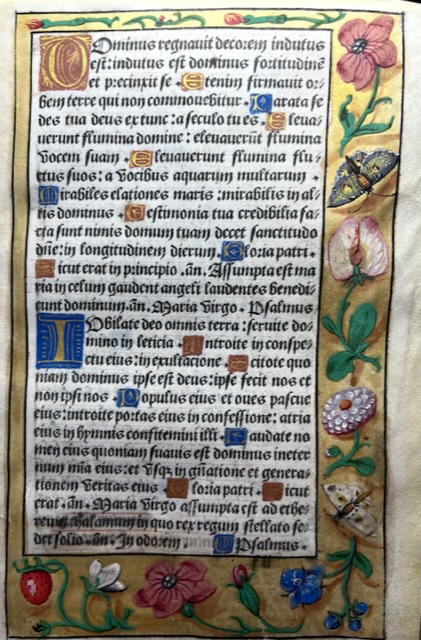 Dominus regnauit decorem indutus
est: indutus est dominus fortitudinē
et precinxit se Etenim firmauit or⸗
bem terre qui non commouebitur. Parata se
des tua deus ex tunc: a seculo tu es. Eleua⸗
uerunt flumina domine: eleuauerūt flumina
vocem suam Eleuauerunt flumina flu⸗
ctus suos: a vocibus aquarum multarum
Mirabiles elationes maris: mirabilis in al⸗
tis dominus Testimonia tua credibilia fa⸗
cta sunt nimis domum tuam decet sanctitudo
dñe: in longitudinem dierum. Gloria patri
Sicut erat in principio. añ. Assumpta est ma
ria in celum gaudent angeli laudentes benedi⸗
cunt dominum. añ. Maria virgo Psalmus
Iubilate deo omnis terra: seruite do⸗
mino in leticia Introite in conspe⸗
ctu eius: in exultacione. Scitote quo
niam dominus ipse est deus: ipse fecit nos et
non ipsi nos Populus eius et oues pascue
eius: introite portas eius in confessione: atria
eius in hymnis confitemini illi Laudate no
men eius quoniam suauis est dominus ineter
num mīa eius: et vsq; in gñatione et genera⸗
tionem veritas eius Gloria patri Sicut
erat. añ Maria virgo assumpta est ad ethe⸗
reum thalamum in quo rex regum stellato se⸗
det solio. añ. In odorem Psalmus